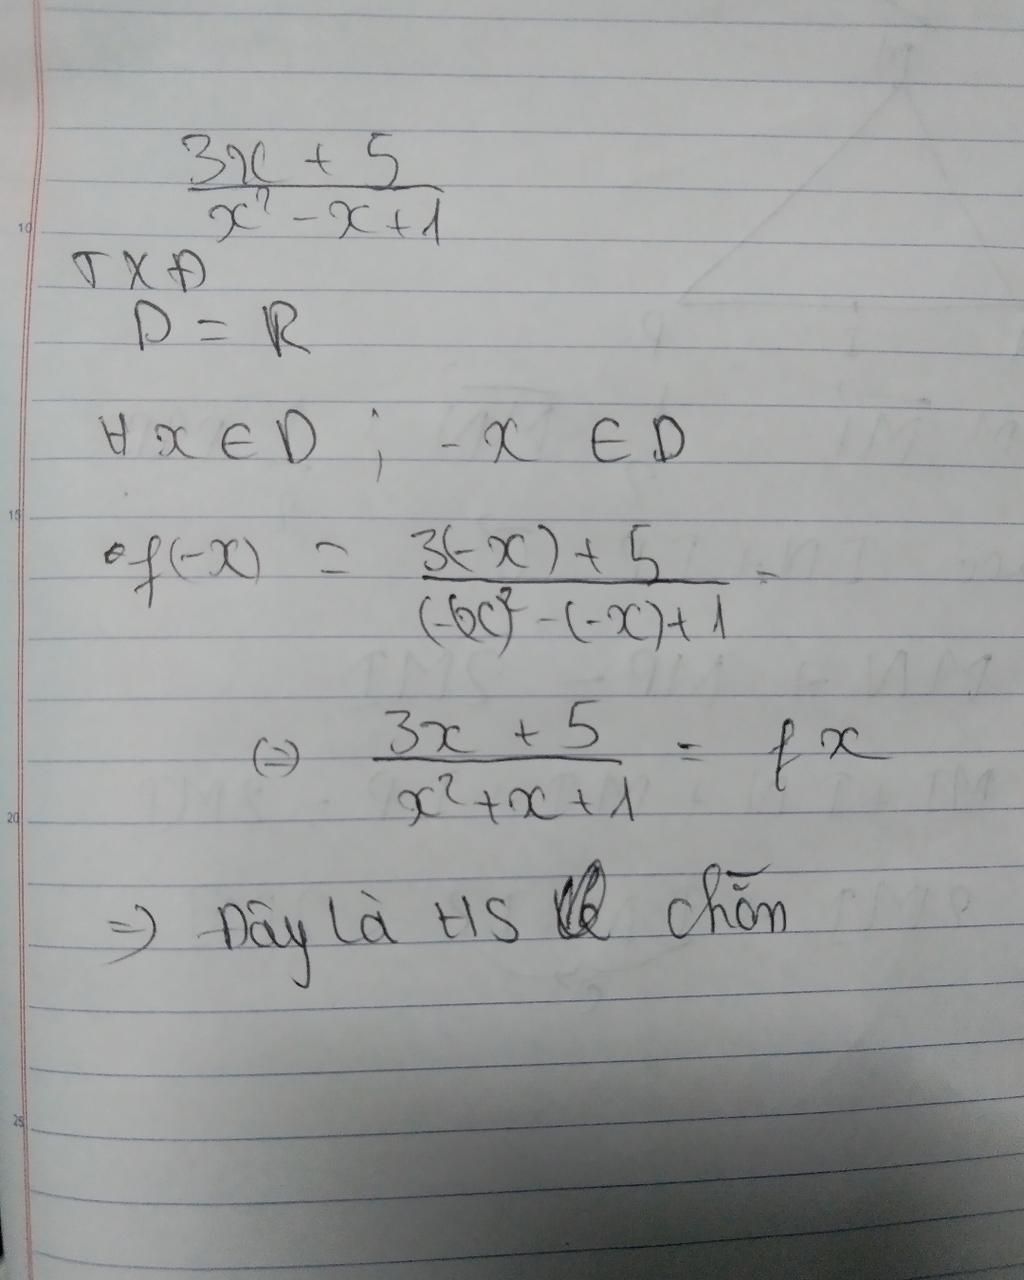 3x + 5
x² - x + 1
10
TXĐ
D = R
∀ x ∈ D ; -x ∈ D
15
f(-x) = 3(-x) + 5 =
(-x)² - (-x) + 1
(=) 3x + 5 = f x
x² + x + 1
20
=) Dây là HS chẵn
25